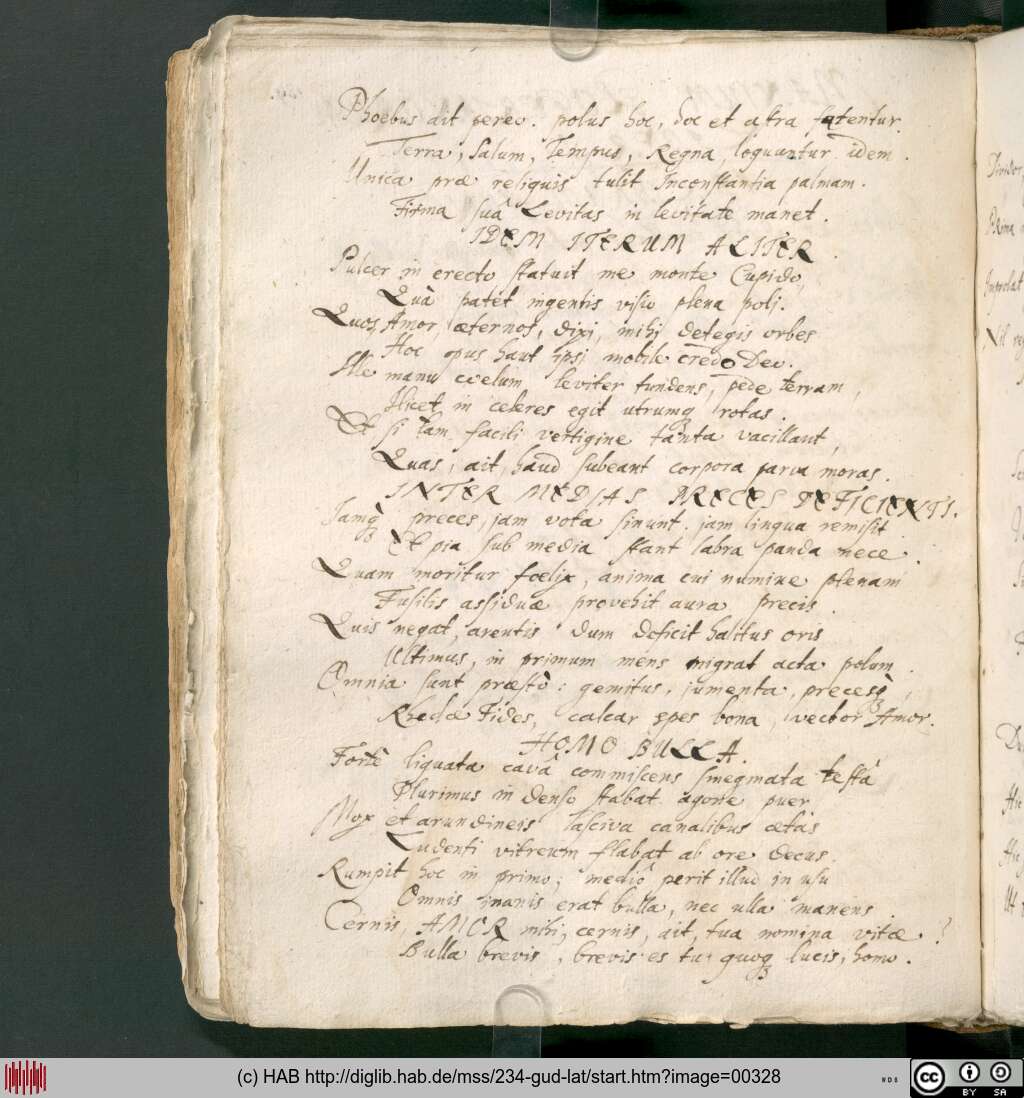 Phoebus ait pereo. polus hoc, hoc et astra fatentur.
Terra, Salum, Tempus, Regna, loquuntur idem.
Unica præ reliquis tulit Inconstantia palmam.
Firma suâ Levitas in levitate manet.
IDEM ITERUM ALITER.
Pulcer in erecto statuit me monte Cupido,
Quà patet ingentis visio plena polj.
Quos Amor, æternos, dixi, mihj detegis orbes
Hoc opus haut ipsi mobile credo Deo.
Ille manu coelum leviter tundens, pede terram,
Ilicet in celeres egit utrumq rotas.
Et si tam facili vertigine tanta vacillant,
Quas, ait, haud subeant corpora parva moras.
INTER MEDIAS PRECES DEFICIENTIS.
Jamq preces, jam vota sinunt. jam lingua remisit
Et pia sub media stant labra panda nece.
Quam moritur foelix, anima cui numine plenam
Fusilis assiduæ provehit aura precis.
Quis negat, arentis dum deficit halitus oris
Ultimus, in primum mens migrat acta polum.
Omnia sunt præstò: gemitus, jumenta, precesq,
Rheda Fides, calcar spes bona, vector Amor.
HOMO BULLA.
Fortè liquata cavâ commiscens smegmata testâ
Plurimus in denso stabat agone puer.
Mox et arundineis lasciva canalibus ætas
Ludenti vitreum flabat ab ore decus.
Rumpit hoc in primo; mediô perit illud in usu
Omnis inanis erat bulla, nec ulla manens.
Cernis, AMOR mihj, cernis, ait, tua nomina vitæ?
Bulla brevis, brevis es tu quoq lucis, homo.
Dividor
Prima
Nil
(c) HAB http://diglib.hab.de/mss/234-gud-lat/start.htm?image=00328
cc
BY SA